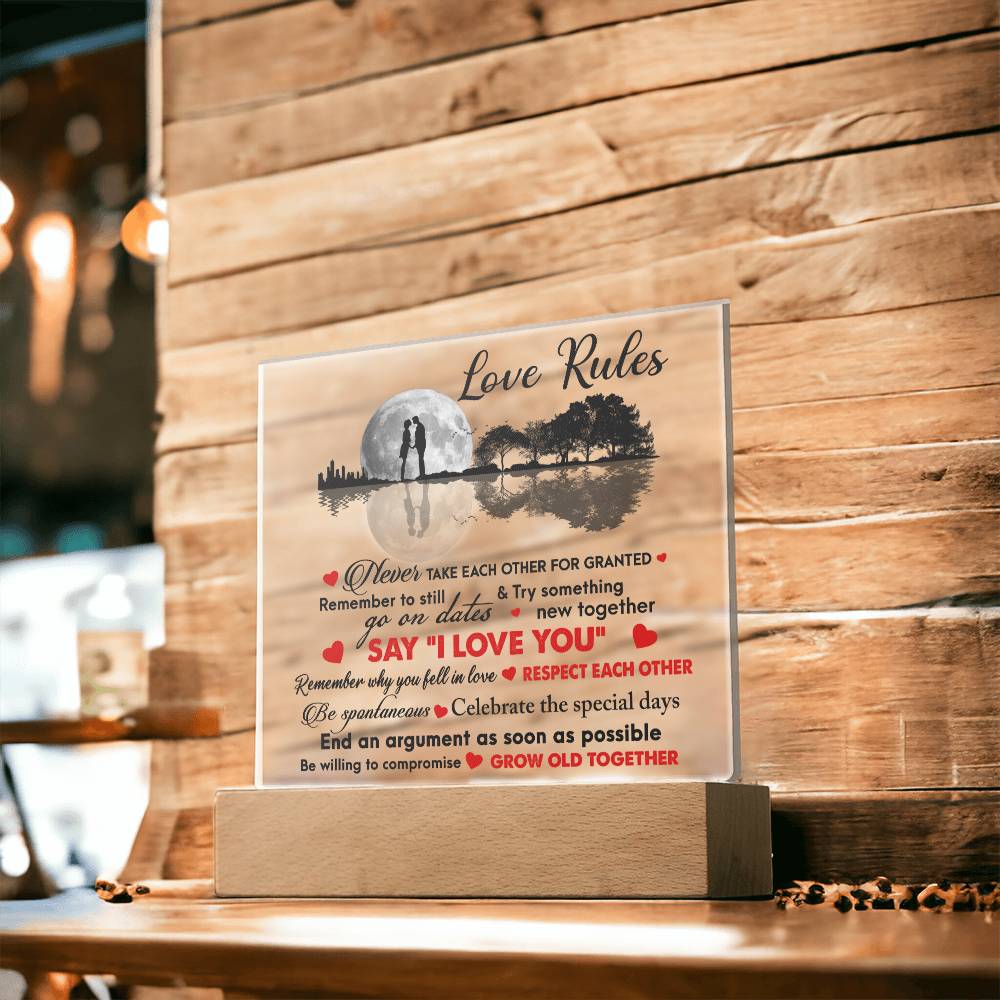 Love Rules
Never TAKE EACH OTHER FOR GRANTED
Remember to still go on dates & Try something new together
SAY "I LOVE YOU"
Remember why you fell in love RESPECT EACH OTHER
Be spontaneous Celebrate the special days
End an argument as soon as possible
Be willing to compromise GROW OLD TOGETHER